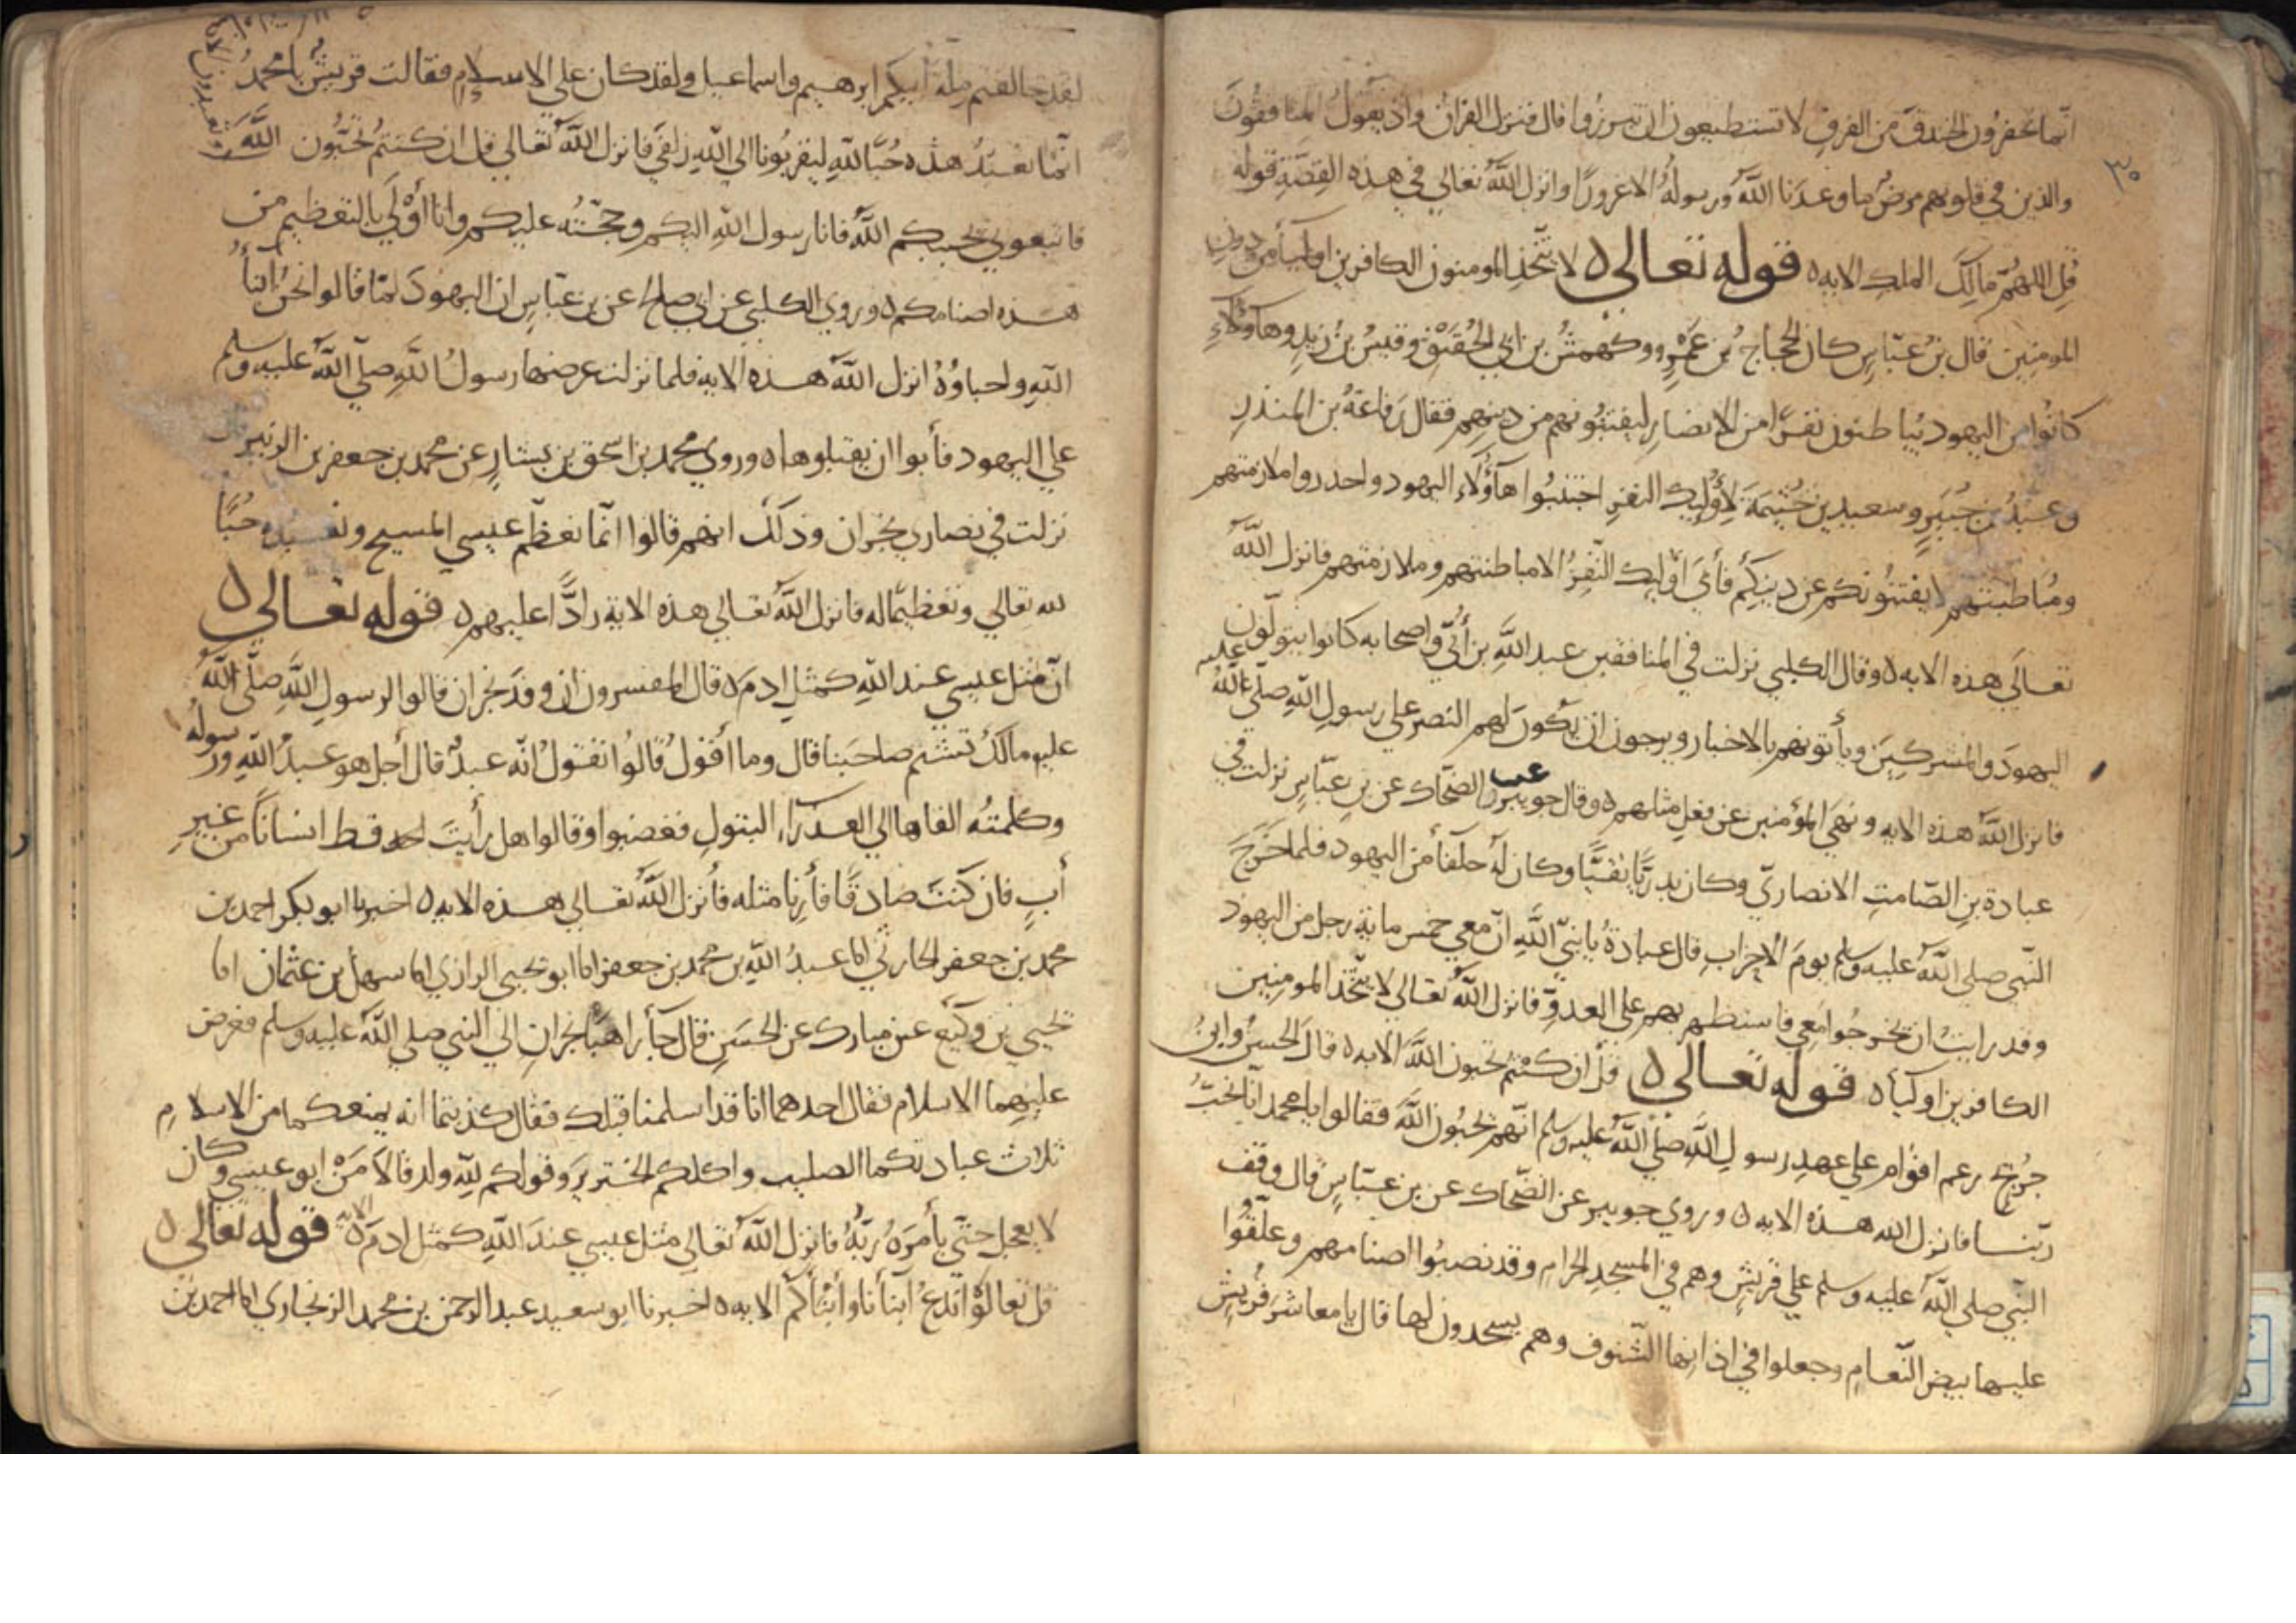 ٣٠
انما تحفرون الخندق من الفرق لا تستطيعون ان تبرزوا قال فنزل القران واذ يقول المنافقون
والذين في قلوبهم مرض ما وعدنا الله ورسوله الا غرورا وانزل الله تعالي في هذه القصة قوله
قل اللهم مالك الملك الايه ه قوله تعالي ه لا يتخذ المومنون الكافرين اوليآ من دون
المومنين قال بن عباس كان الحجاج بن عمرو وكهمش بن ابي الحقيق وقيس بن زيد وهاؤلاء
كانوا من اليهود يباطنون نفرا من الانصار ليفتنونهم من دينهم فقال رفاعة بن المنذر
وعبد بن جبير وسعيد بن خيثمة لأوليك النفر اجتنبوا هاؤلاء اليهود واحدروا ملازمتهم
ومباطنتهم لا يفتنونكم عن دينكم فأبي اوليك النفر الا مباطنتهم وملازمتهم فانزل الله
تعالي هذه الايه ه وقال الكلبي نزلت في المنافقين عبد الله بن أبي واصحابه كانوا يتولون
اليهود والمشركين ويأتونهم بالاخبار ويرجون ان يكون لهم النصر علي رسول الله صلي الله عليه
فانزل الله هذه الايه ونهي المؤمنين عن فعل مثلهم ه وقال جويبر عن الضحاك عن بن عباس نزلت في
عبادة بن الصامت الانصاري وكان بدريا نقيبا وكان له حلفآ من اليهود فلما خرج
النبي صلي الله عليه وسلم يوم الاحزاب قال عبادة يا نبي الله ان معي خمس ماية رجل من اليهود
وقد رايت ان يخرجوا معي فاستظهر بهم علي العدو فانزل الله تعالي لا يتخذ المومنين
الكافرين اوليآ ه قوله تعالي ه قل ان كنتم تحبون الله الايه ه قال الحسن وابن
جريج زعم اقوام علي عهد رسول الله صلي الله عليه وسلم انهم يحبون الله فقالوا يا محمد انا نحب
ربنا فانزل الله هذه الايه ه وروي جويبر عن الضحاك عن بن عباس قال وقف
النبي صلي الله عليه وسلم علي قريش وهم في المسجد الحرام وقد نصبوا اصنامهم وعلقوا
عليها بيض النعام وجعلوا في اذانها الشنوف وهم يسجدون لها قال يا معاشر قريش
لقد خالفتم ملة أبيكم ابرهيم واسماعيل ولقد كان علي الاسلام فقالت قريش يا محمد
انما نعبد هذه حبا لله ليقربونا الي الله زلفي فانزل الله تعالي قل ان كنتم تحبون الله
فاتبعوني يحببكم الله فانا رسول الله اليكم وحجته عليكم وانا أولي بالتعظيم من
هذه اصنامكم ه وروي الكلبي عن ابي صلح عن بن عباس ان اليهود لما قالوا نحن ابنآء
الله واحباؤه انزل الله هذه الايه فلما نزلت عرضها رسول الله صلي الله عليه وسلم
علي اليهود فأبوا ان يقبلوها ه وروي محمد بن اسحق بن يسار عن محمد بن جعفر بن الزبير قال
نزلت في نصاري نجران وذلك انهم قالوا انما نعظم عيسي المسيح ونعبده حبا
لله تعالي وتعظيما له فانزل الله تعالي هذه الاية رادا عليهم ه قوله تعالي ه
ان مثل عيسي عند الله كمثل ادم ه قال المفسرون ان وفد نجران قالوا لرسول الله صلي الله
عليه مالك تشتم صاحبنا قال وما أقول قالوا تقول انه عبد قال أجل هو عبد الله ورسوله
وكلمته القاها الي العذراء البتول فغضبوا وقالوا هل رأيت احد قط انسانا من غير
أب فان كنت صادقا فأرنا مثله فأنزل الله تعالي هذه الايه ه اخبرنا ابو بكر احمد بن
محمد بن جعفر الحارثي انا عبد الله بن محمد بن جعفر انا ابو يحيي الرازي انا سهل بن عثمان انا
يحيي بن وكيع عن مبارك عن الحسن قال جآ راهبا نجران الي النبي صلي الله عليه وسلم فعرض
عليهما الاسلام فقال احدهما انا قد اسلمنا قبلك فقال كذبتما انه يمنعكما من الاسلام
ثلاث عبادتكما الصليب واكلكم الخنزير وقولكم لله ولد قالا من ابو عيسي وكان
لا يعجل حتي يأمره ربه فانزل الله تعالي مثل عيسي عند الله كمثل ادم الايه ه قوله تعالي ه
قل تعالوا ندع أبنآنا وأبنآكم الايه ه اخبرنا ابو سعيد عبد الرحمن بن محمد الزنجاري انا احمد بن